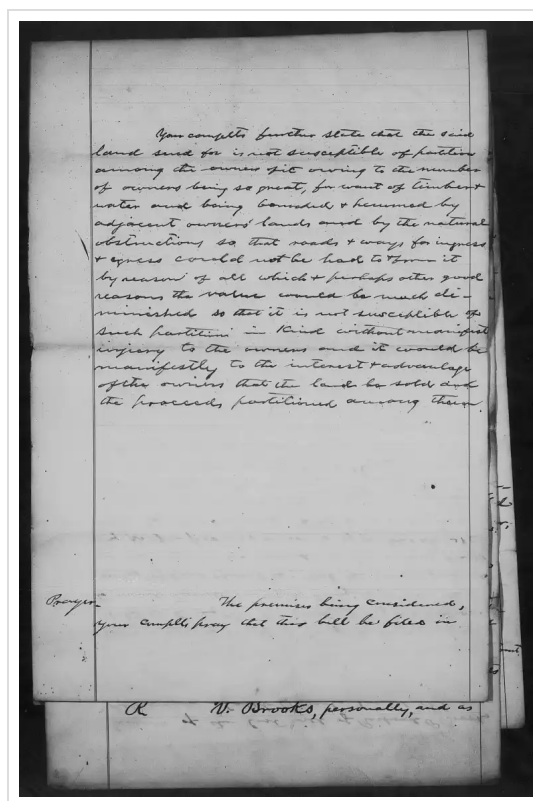 Your complts further state that the said
land sued for is not susceptible of partition
among the owners of it owing to the number
of owners being so great, for want of timber +
water and being bounded + hemmed by
adjacent owners' lands and by the natural
obstructions so that roads + ways for ingress
+ egress could not be had to + from it
by reason of all which + perhaps other good
reasons the value would be much di-
minished so that it is not susceptible of
such partition in Kind without manifest
injury to the owners and it would be
manifestly to the interest + advantage
of the owners that the land be sold and
the proceeds partitioned among them.
Prayer- The premises being considered,
your complts pray that this bill be filed in
R W. Brooks, personally, and as